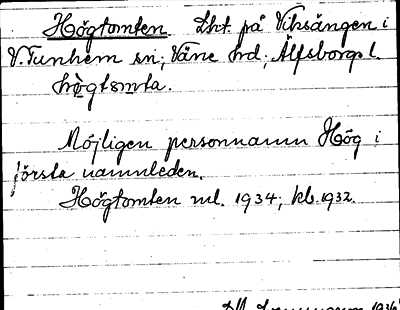 Högtomten Lht. på Viksängen i
V. Tunhem sn; Väne hd; Älfsborgs l.
hògtsmta.
Möjligen personnamn Hög i
första namnleden.
Högtomten ml. 1934; kb. 1932.
1936